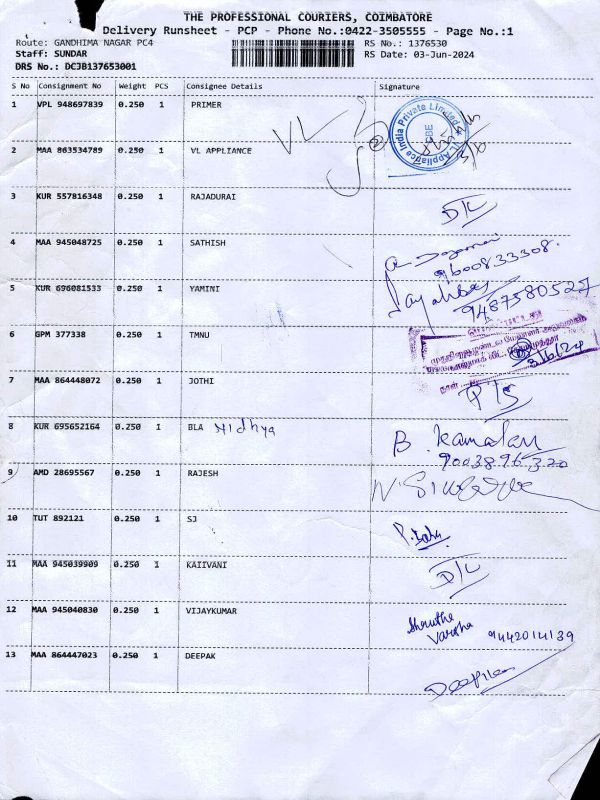 THE PROFESSIONAL COURIERS, COIMBATORE
Delivery Runsheet - PCP - Phone No.:0422-3505555 - Page No.:1
Route: GANDHIMA NAGAR PC4 RS No.: 1376530
Staff: SUNDAR RS Date: 03-Jun-2024
DRS No.: DCJB137653001
S No Consignment No Weight PCS Consignee Details Signature
1 VPL 948697839 0.250 1 PRIMER
VL
VL Appliance India Private Limited
3/6
2 MAA 863534789 0.250 1 VL APPLIANCE
3 KUR 557816348 0.250 1 RAJADURAI D/L
4 MAA 945048725 0.250 1 SATHISH
9600833308.
5 KUR 696081533 0.250 1 YAMINI
9487580527
6 GPM 377338 0.250 1 TMNU
3/6/24
7 MAA 864448072 0.250 1 JOTHI P/S
8 KUR 695652164 0.250 1 BLA Nidhya B. Kamalam
9003896320
9 AMD 28695567 0.250 1 RAJESH
10 TUT 892121 0.250 1 SJ P. Babu
11 MAA 945039909 0.250 1 KAIIVANI D/L
12 MAA 945040830 0.250 1 VIJAYKUMAR Shruthe
Varsha 9442014139
13 MAA 864447023 0.250 1 DEEPAK